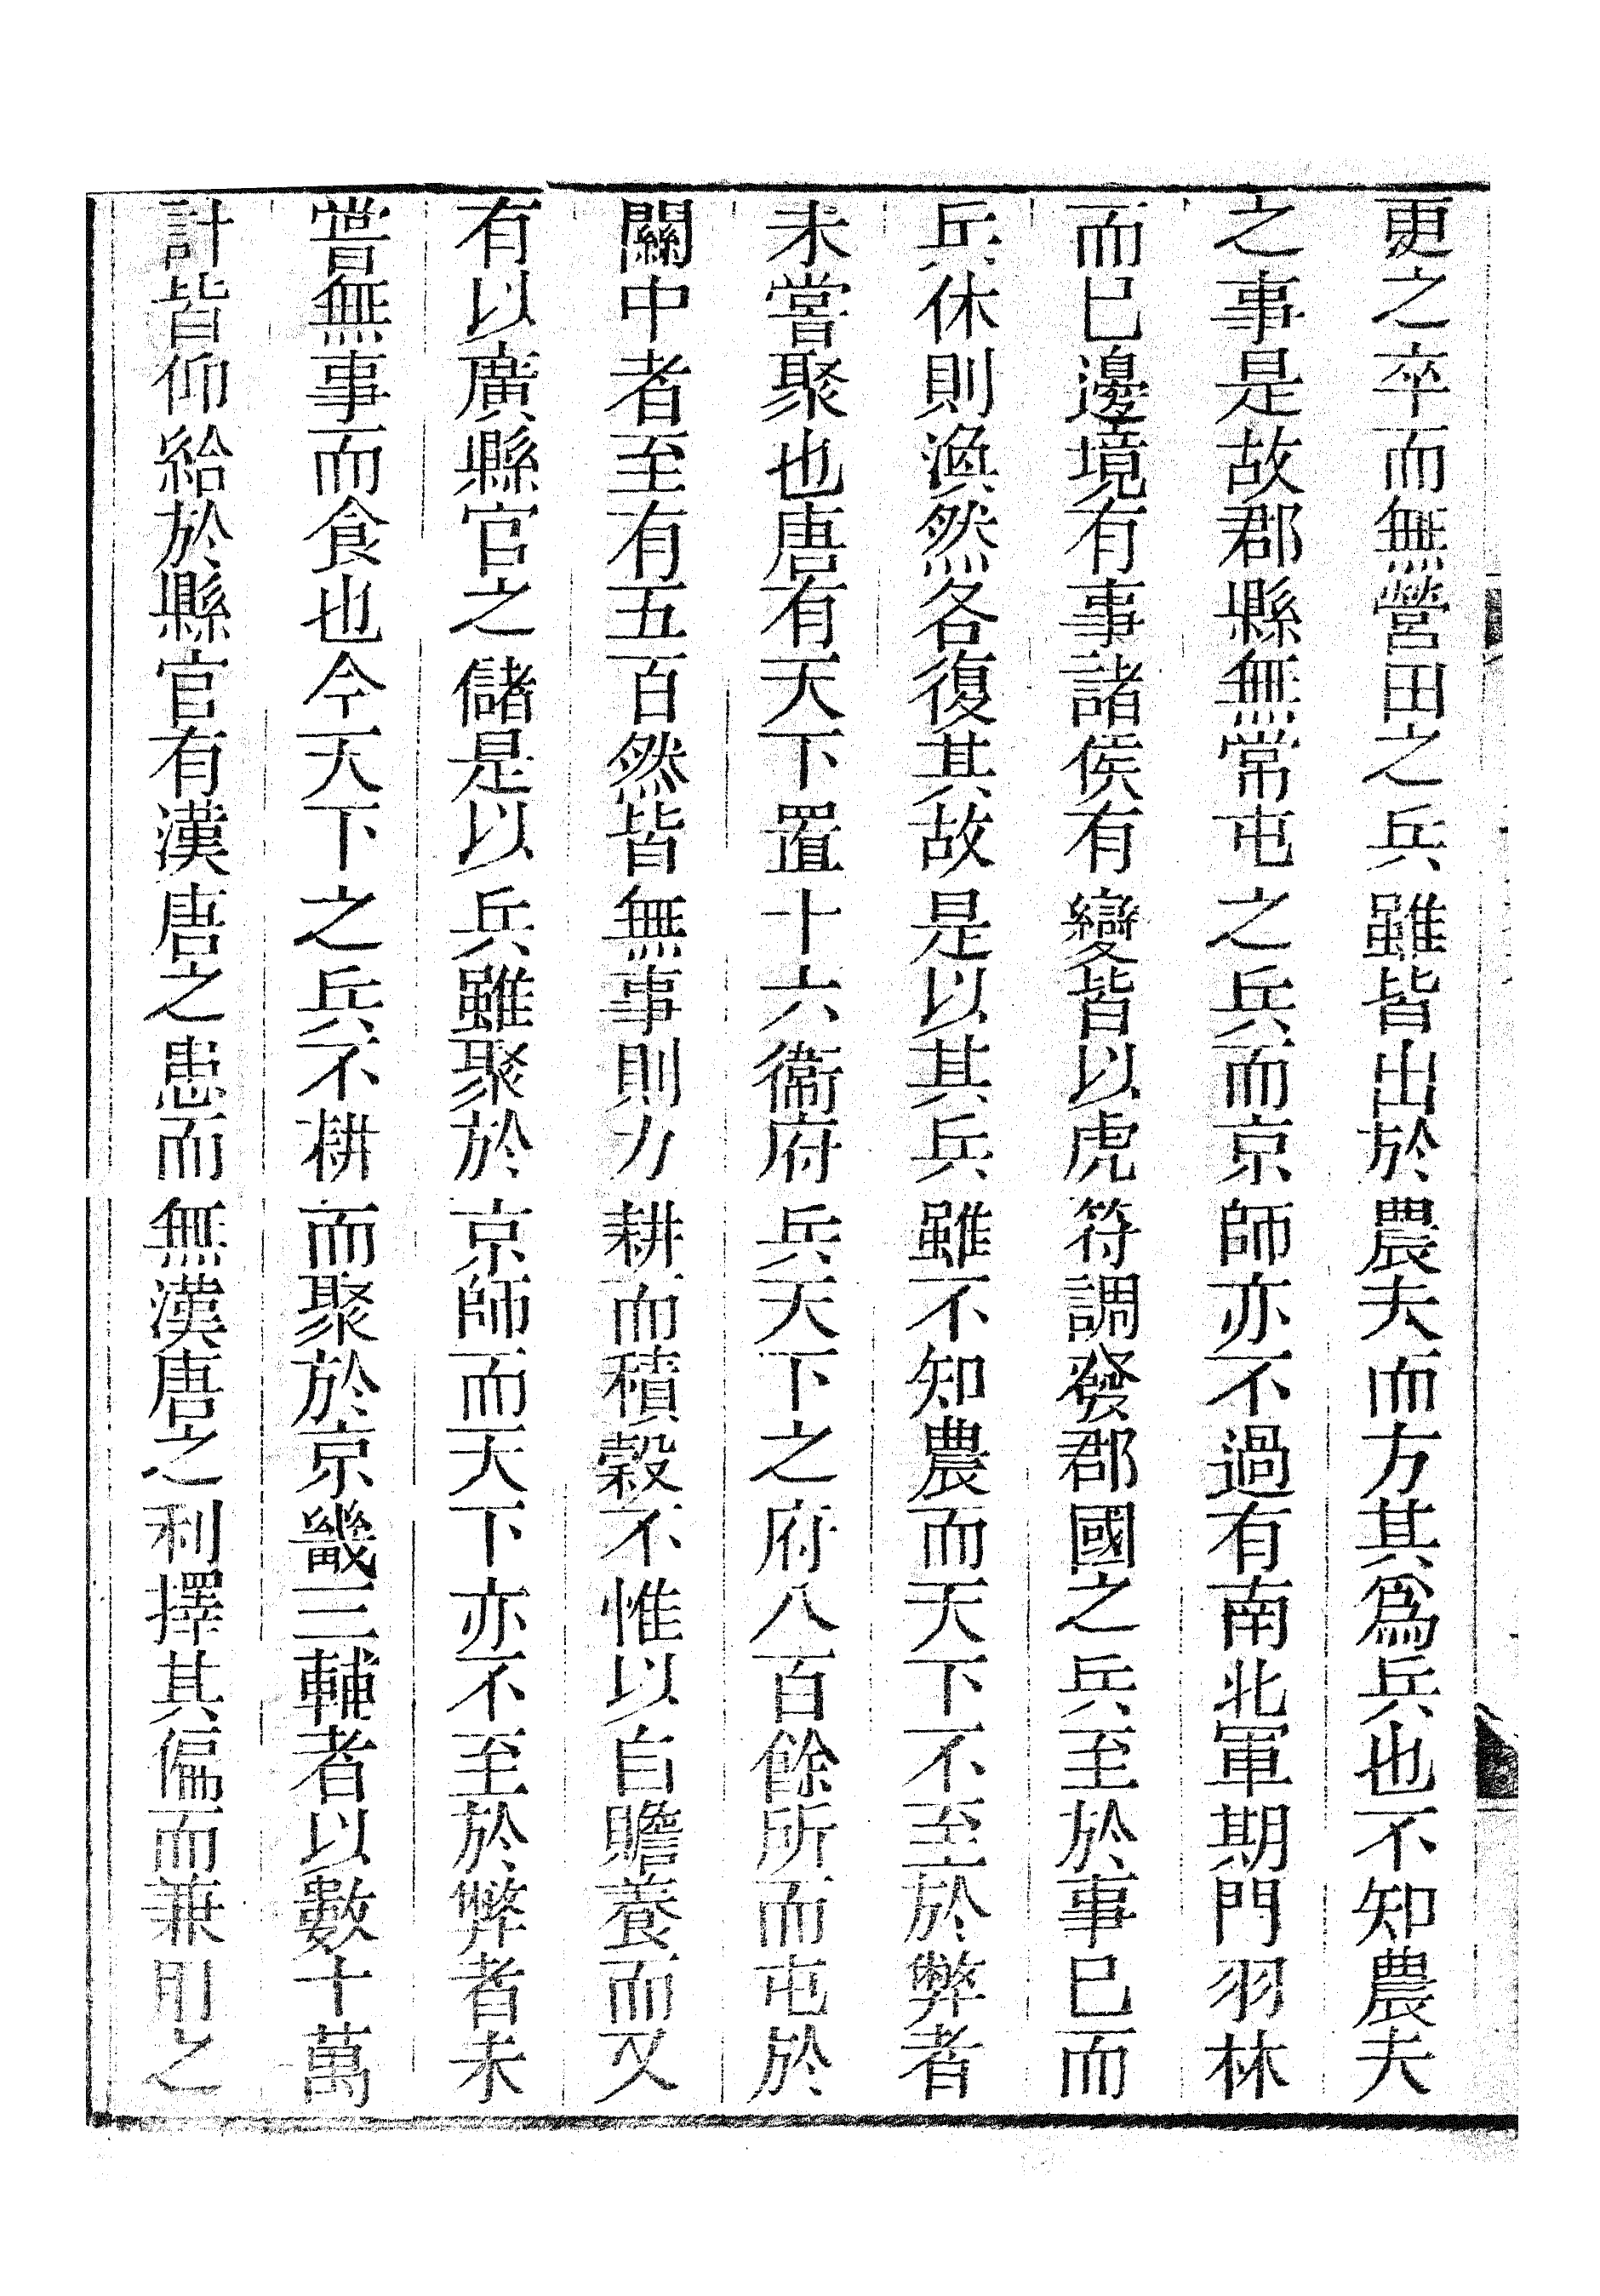 更之卒而無營田之兵雖皆出於農夫而方其爲兵也不知農夫
之事是故郡縣無常屯之兵而京師亦不過有南北軍期門羽林
而巳邊境有事諸侯有變皆以虎符調發郡國之兵至於事巳而
兵休則渙然各復其故是以其兵雖不知農而天下不至於弊者
未嘗聚也唐有天下置十六衞府兵天下之府八百餘所而屯於
關中者至有五百然皆無事則力耕而積穀不惟以自贍養而又
有以廣縣官之儲是以兵雖聚於京師而天下亦不至於弊者未
嘗無事而食也今天下之兵不耕而聚於京畿三輔者以數十萬
計皆仰給於縣官有漢唐之患而無漢唐之利擇其偏而兼用之